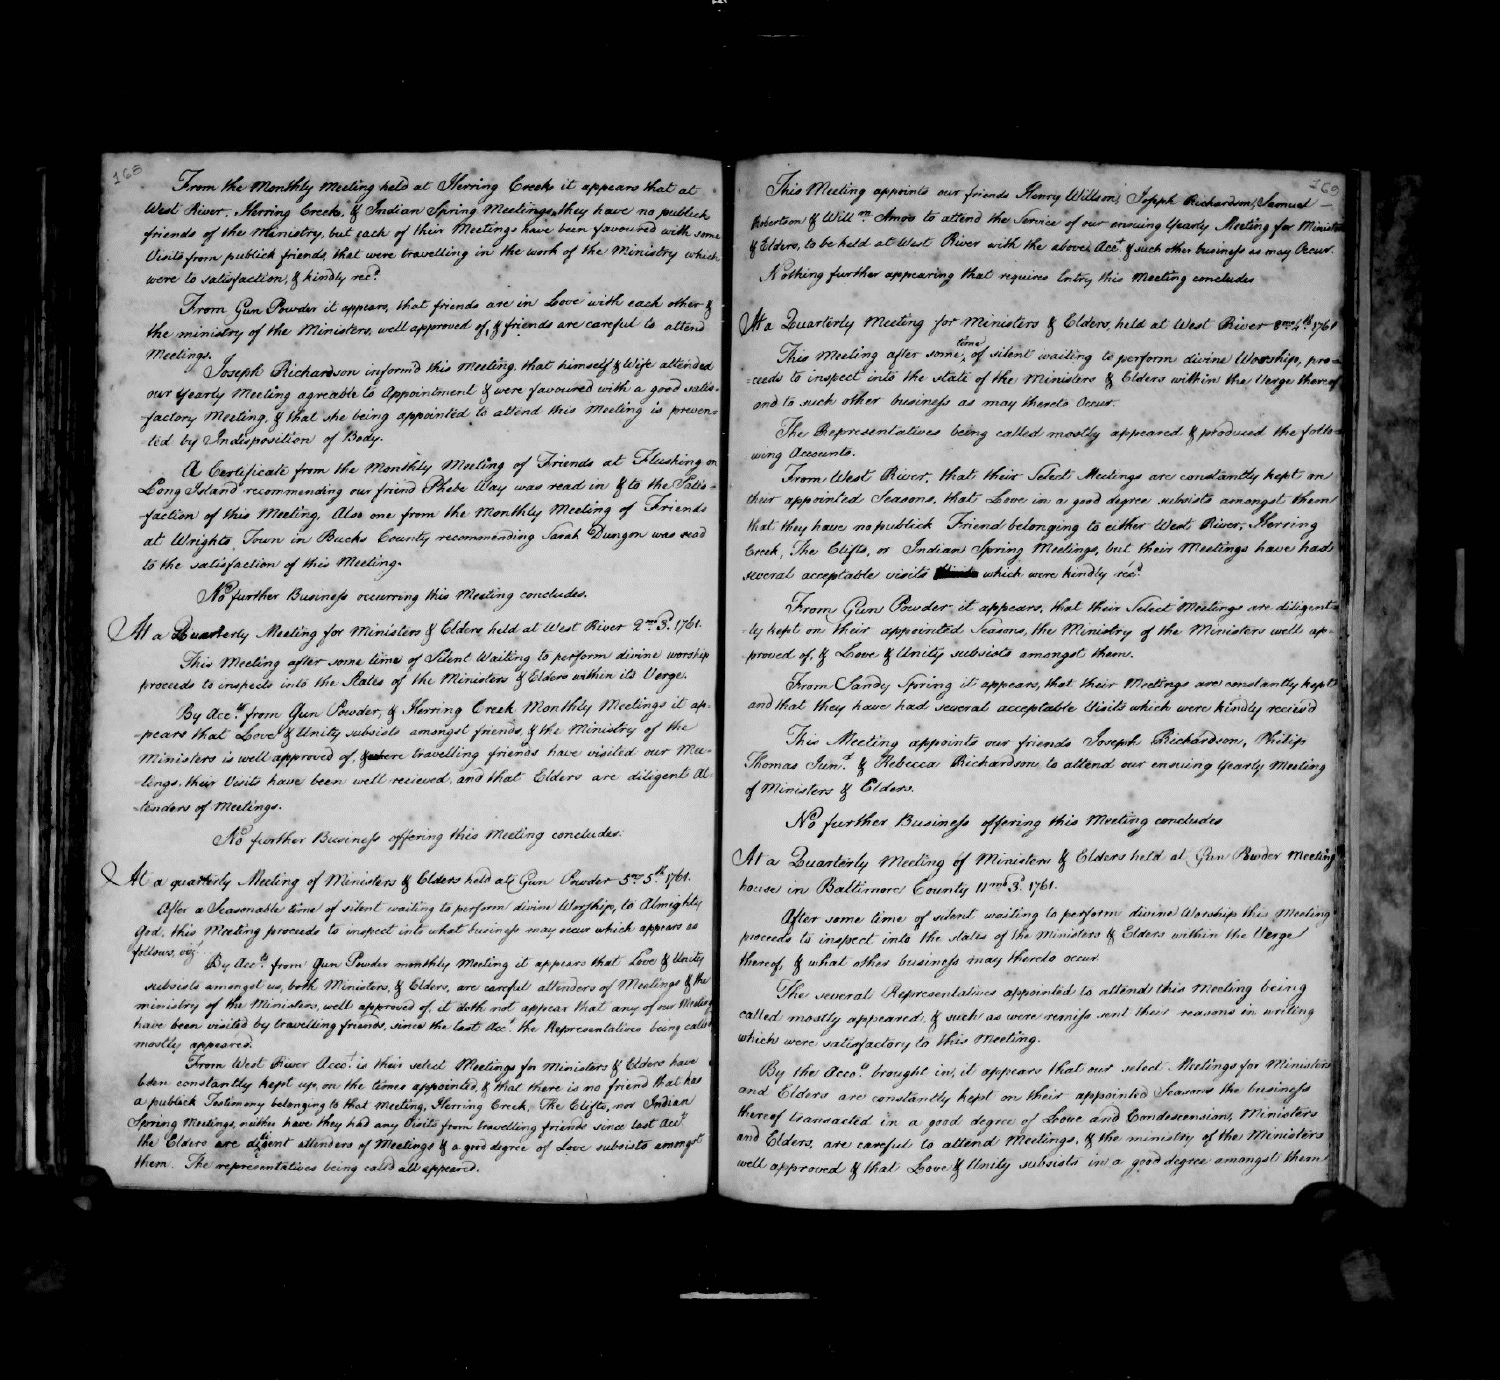 168
From the Monthly Meeting held at Herring Creek it appears that at
West River, Herring Creek, & Indian Spring Meetings, they have no publick
friends of the Ministry, but each of their Meetings have been favoured with some
Visits from publick friends, that were travelling in the work of the Ministry which
were to satisfaction, & kindly recd.
From Gun Powder it appears, that friends are in Love with each other &
the ministry of the Ministers, well approved of, & friends are careful to attend
Meetings.
Joseph Richardson inform'd this meeting, that himself & Wife attended
our yearly Meeting agreable to Appointment & were favoured with a good satis=
factory Meeting, & that she being appointed to attend this Meeting is preven=
ted by Indisposition of Body.
A Certificate from the Monthly Meeting of Friends at Flushing on
Long Island recommending our friend Phebe Way was read in & to the Satis=
=faction of this Meeting, Also one from the Monthly Meeting of Friends
at Wrights Town in Bucks County recommending Sarah Dungon was read
to the satisfaction of this Meeting.
No further Business occurring this Meeting concludes.
At a Quarterly Meeting for Ministers & Elders held at West River 2mo 3d. 1761.
This Meeting after some time of Silent Waiting to perform divine worship
proceeds to inspects into the States of the Ministers & Elders within its Verge.
By Accts from Gun Powder, & Herring Creek Monthly Meetings it ap=
=pears that Love & Unity subsists amongst friends, & the Ministry of the
Ministers is well approved of, & where travelling friends have visited our Mee=
=tings, their Visits have been well recieved, and that Elders are diligent At=
=tenders of Meetings.
No further Business offering this Meeting concludes.
At a quarterly Meeting of Ministers & Elders held at Gun Powder 5mo 5th 1761.
After a Seasonable time of silent waiting to perform divine Worship, to Almighty
God, this Meeting proceeds to inspect into what business may occur which appears as
follows, viz.
By Accts from Gun Powder monthly Meeting it appears that Love & Unity
subsists amongst us, both Ministers, & Elders, are careful attenders of Meetings & the
ministry of the Ministers, well approved of, it doth not appear that any of our Meetings
have been visited by travelling friends, since the last Acct. the Representatives being called
mostly appeared.
From West River Acct. is their select Meetings for Ministers & Elders have
been constantly kept up, on the times appointed, & that there is no friend that has
a publick Testimony belonging to that Meeting, Herring Creek, The Clifts, nor Indian
Spring Meetings, neither have they had any Visits from travelling friends since last Acct
the Elders are diligent attenders of Meetings & a good degree of Love subsists amongst
them. The representatives being called all appeared.
169
This Meeting appoints our friends Henry Willson, Joseph Richardson, Samuel
Robertson & Willm Amos to attend the Service of our ensuing Yearly Meeting for Ministers
& Elders, to be held at West River with the above Acct. & such other business as may Occur.
Nothing further appearing that requires Entry this Meeting concludes
At a Quarterly Meeting for Ministers & Elders, held at West River 8mo 4th 1761
This Meeting after some time of silent waiting to perform divine Worship, pro=
=ceeds to inspect into the state of the Ministers & Elders within the Verge thereof
and to such other business as may thereto Occur.
The Representatives being called mostly appeared & produced the follo=
wing Accounts.
From West River, that their Select Meetings are constantly kept on
their appointed Seasons, that Love in a good degree subsists amongst them
that they have no publick Friend belonging to either West River, Herring
Creek, The Clifts, or Indian Spring Meetings, but their Meetings have had
several acceptable visits which were kindly recd.
From Gun Powder it appears, that their Select Meetings are diligent=
=ly kept on their appointed Seasons, the Ministry of the Ministers well ap=
proved of, & Love & Unity subsists amongst them.
From Sandy Spring it appears, that their Meetings are constantly kept
and that they have had several acceptable Visits which were kindly reciev'd
This Meeting appoints our friends Joseph Richardson, Philip
Thomas Junr. & Rebecca Richardson to attend our ensuing Yearly Meeting
of Ministers & Elders.
No further Business offering this Meeting concludes
At a Quarterly Meeting of Ministers & Elders held at Gun Powder Meeting
house in Baltimore County 11mo 3d. 1761.
After some time of silent waiting to perform divine Worship this Meeting
proceeds to inspect into the states of the Ministers & Elders within the Verge
thereof, & what other business may thereto occur
The several Representatives appointed to attend this Meeting being
called mostly appeared, & such as were remiss sent their reasons in writing
which were satisfactory to this Meeting.
By the Accots. brought in, it appears that our select Meetings for Ministers
and Elders are constantly kept on their appointed Seasons the business
thereof transacted in a good degree of Love and Condescension, Ministers
and Elders, are careful to attend Meetings, & the ministry of the Ministers
well approved & that Love & Unity subsists in a good degree amongst them